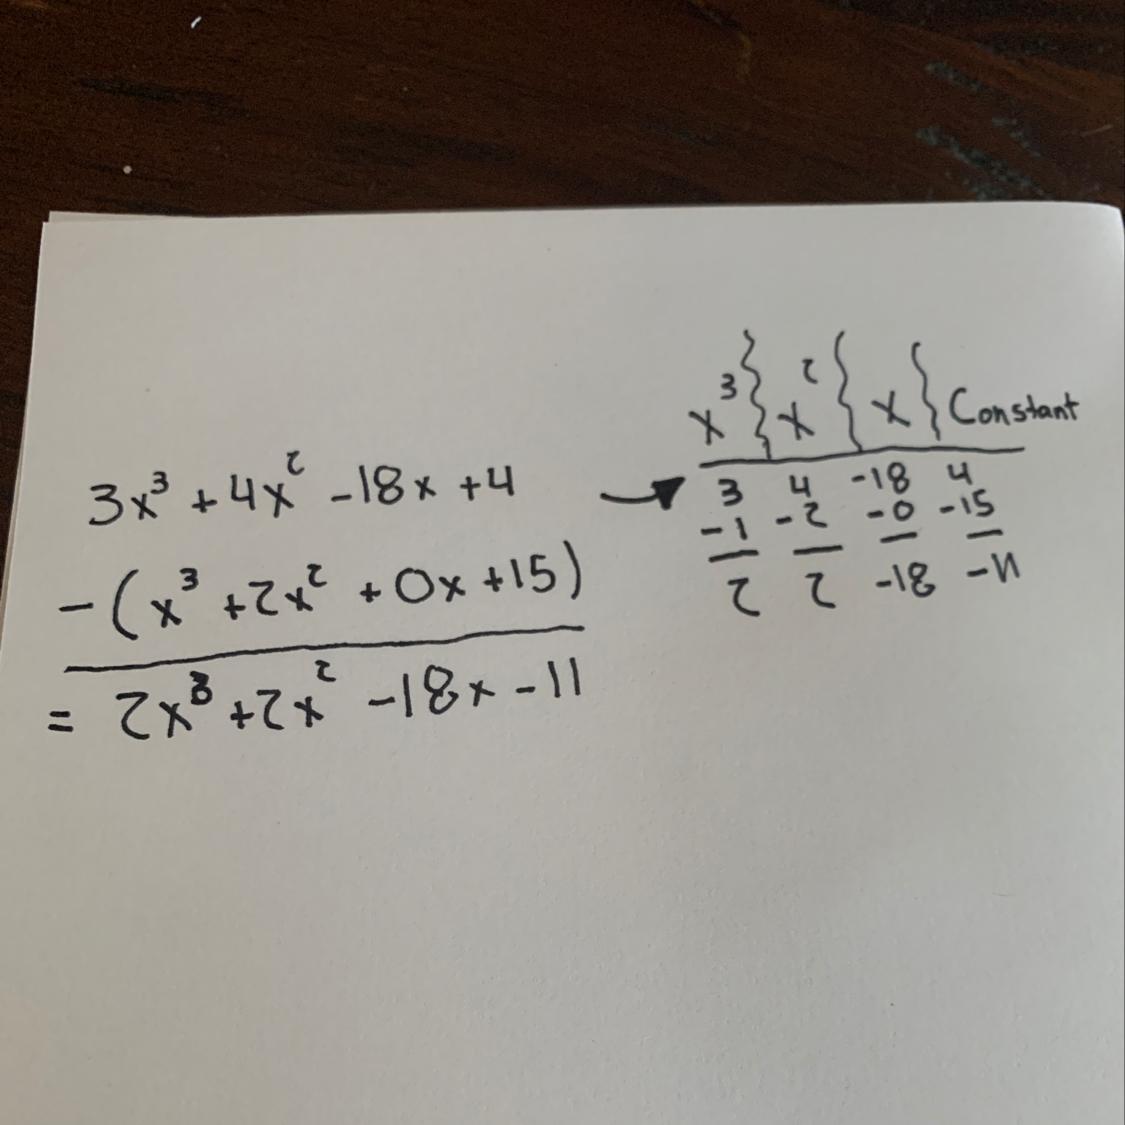 3x³ + 4x² - 18x + 4
- (x³ + 2x² + 0x + 15)
= 2x³ + 2x² - 18x - 11
x³ x² x Constant
3 4 -18 4
-1 -2 -0 -15
2 2 -18 -11